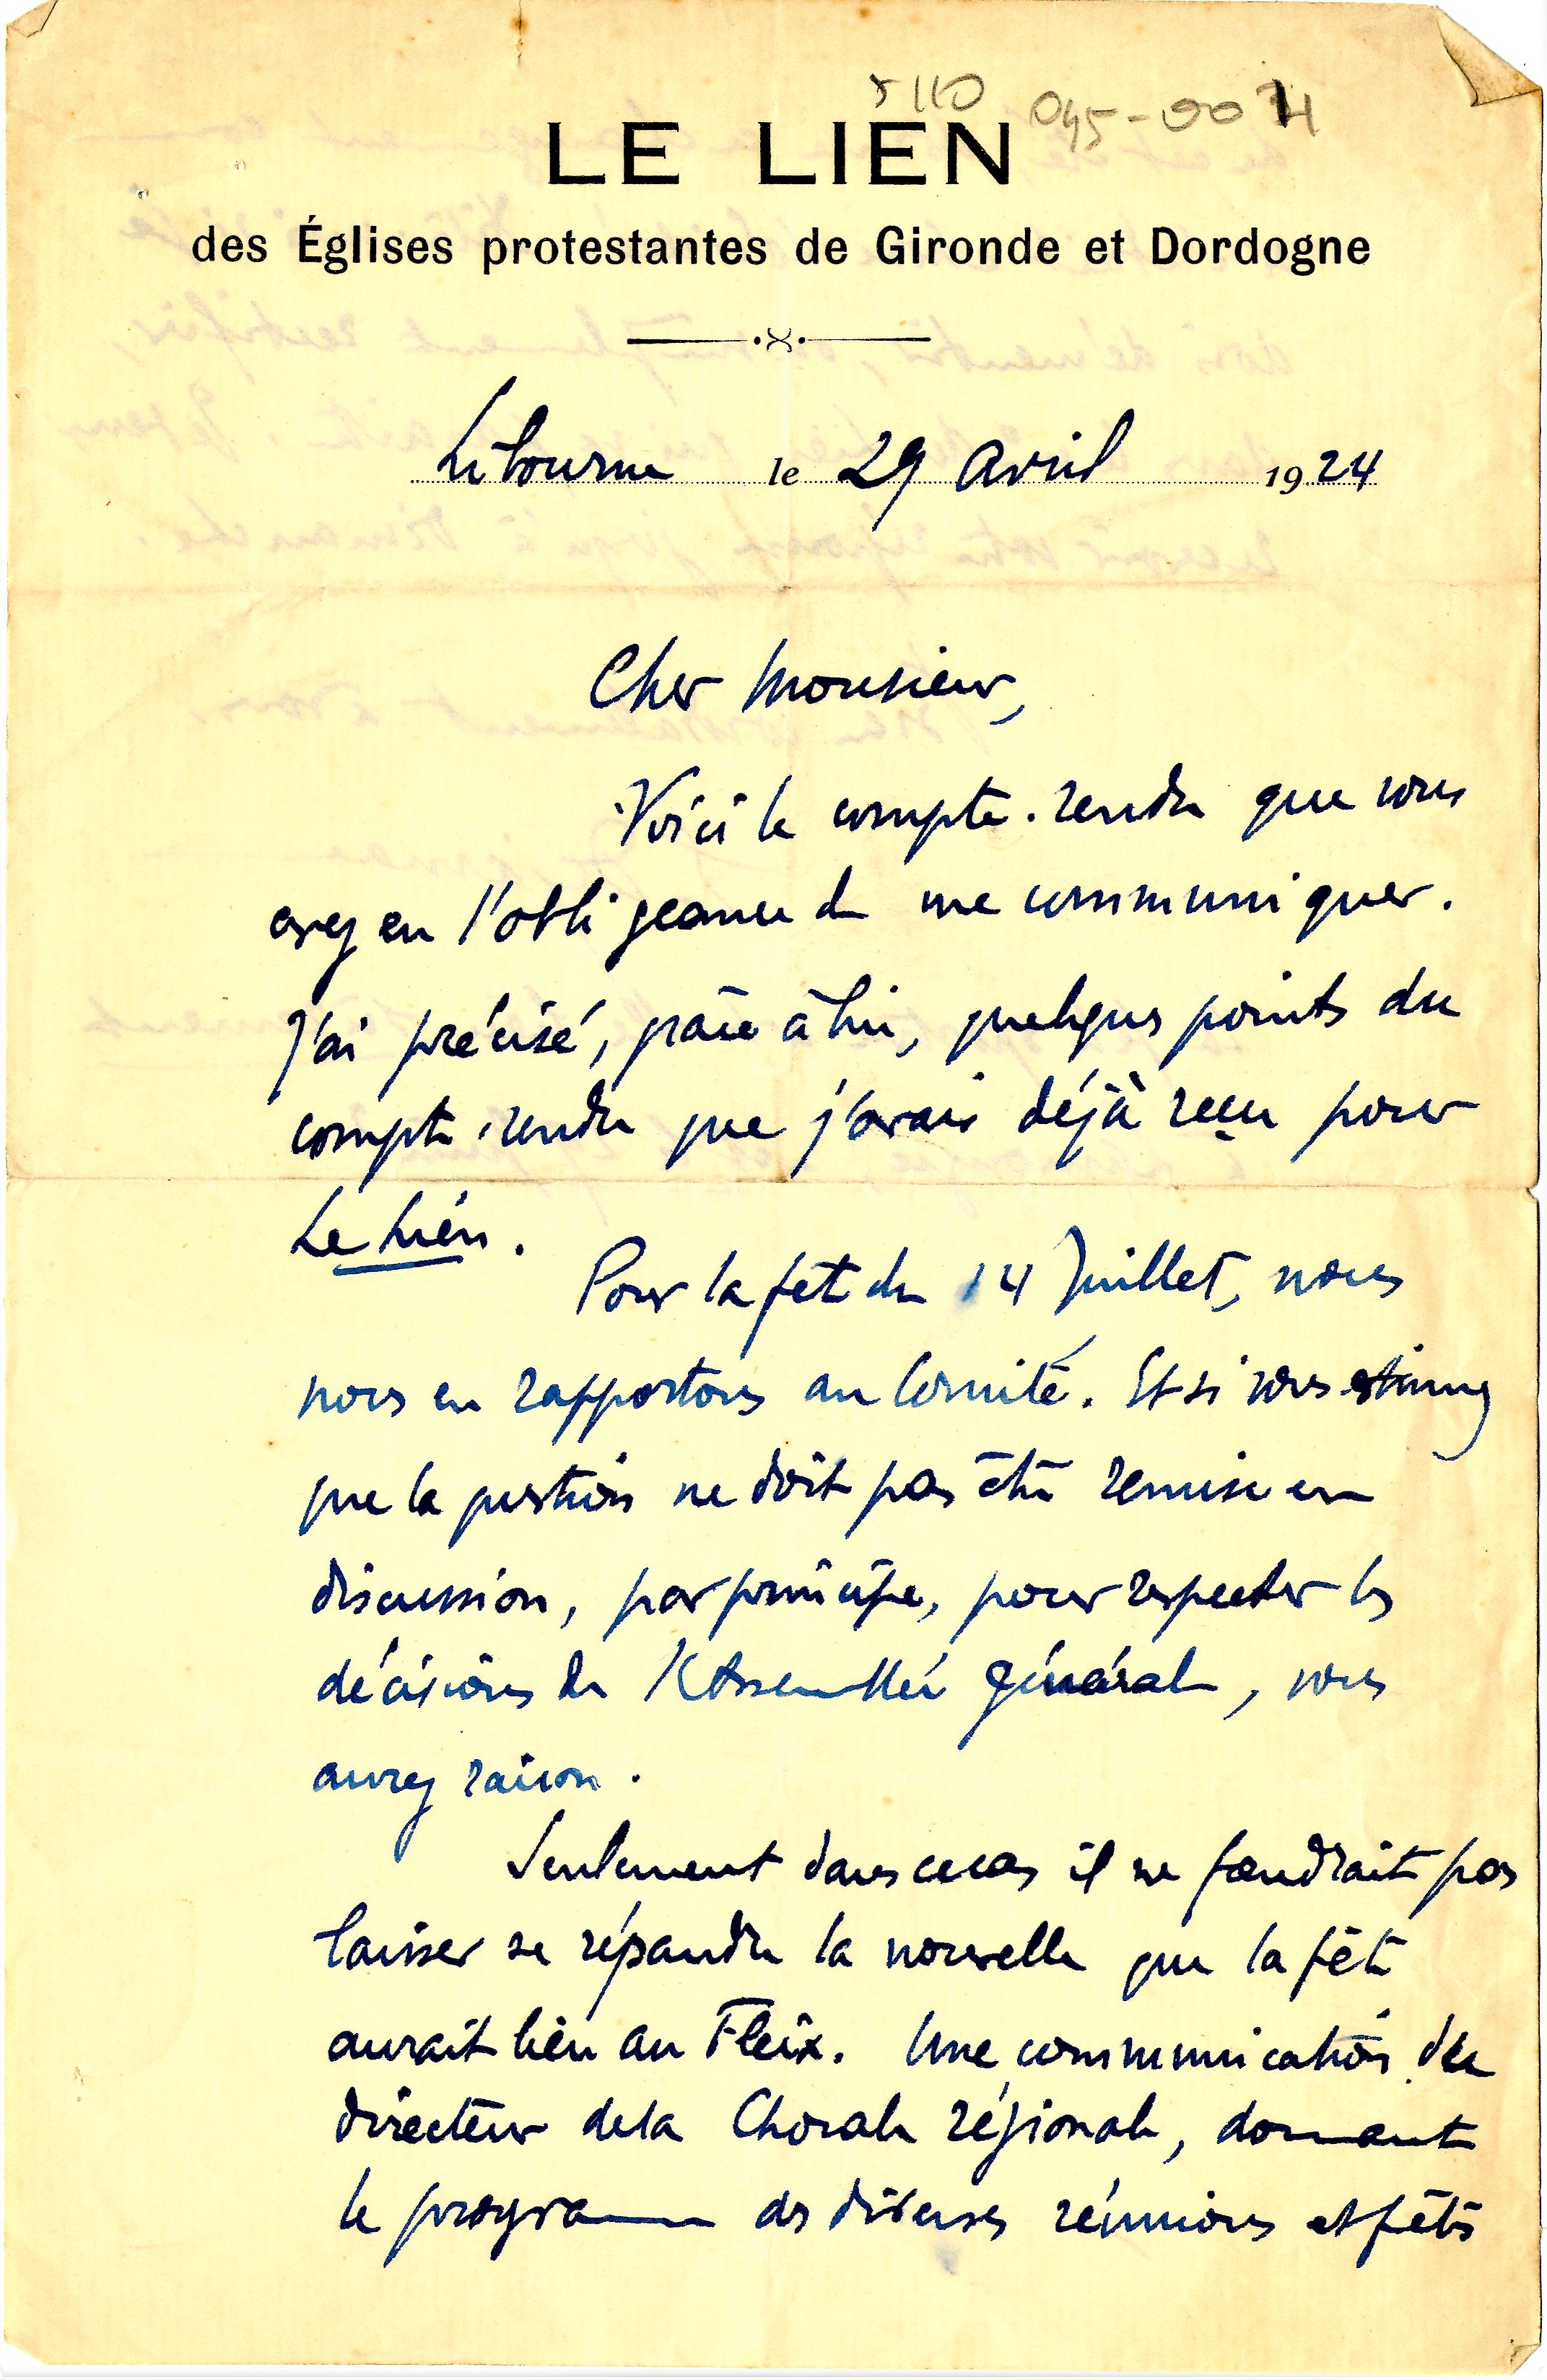 5110 045-0074
LE LIEN
des Églises protestantes de Gironde et Dordogne
Libourne le 29 Avril 1924
Cher Monsieur,
Voici le compte-rendu que vous
avez eu l'obligeance de me communiquer.
J'ai précisé, grâce à lui, quelques points du
compte-rendu que j'avais déjà reçu pour
Le Lien.
Pour la fête du 14 Juillet, nous
nous en rapportons au Comité. Et si vous estimez
que la question ne doit pas être remise en
discussion, par principe, pour respecter les
décisions de l'Assemblée générale, vous
aurez raison.
Seulement dans ce cas il ne faudrait pas
laisser se répandre la nouvelle que la fête
aurait lieu au Fleix. Une communication du
directeur de la Chorale régionale, donnant
le programme des diverses réunions et fêtes